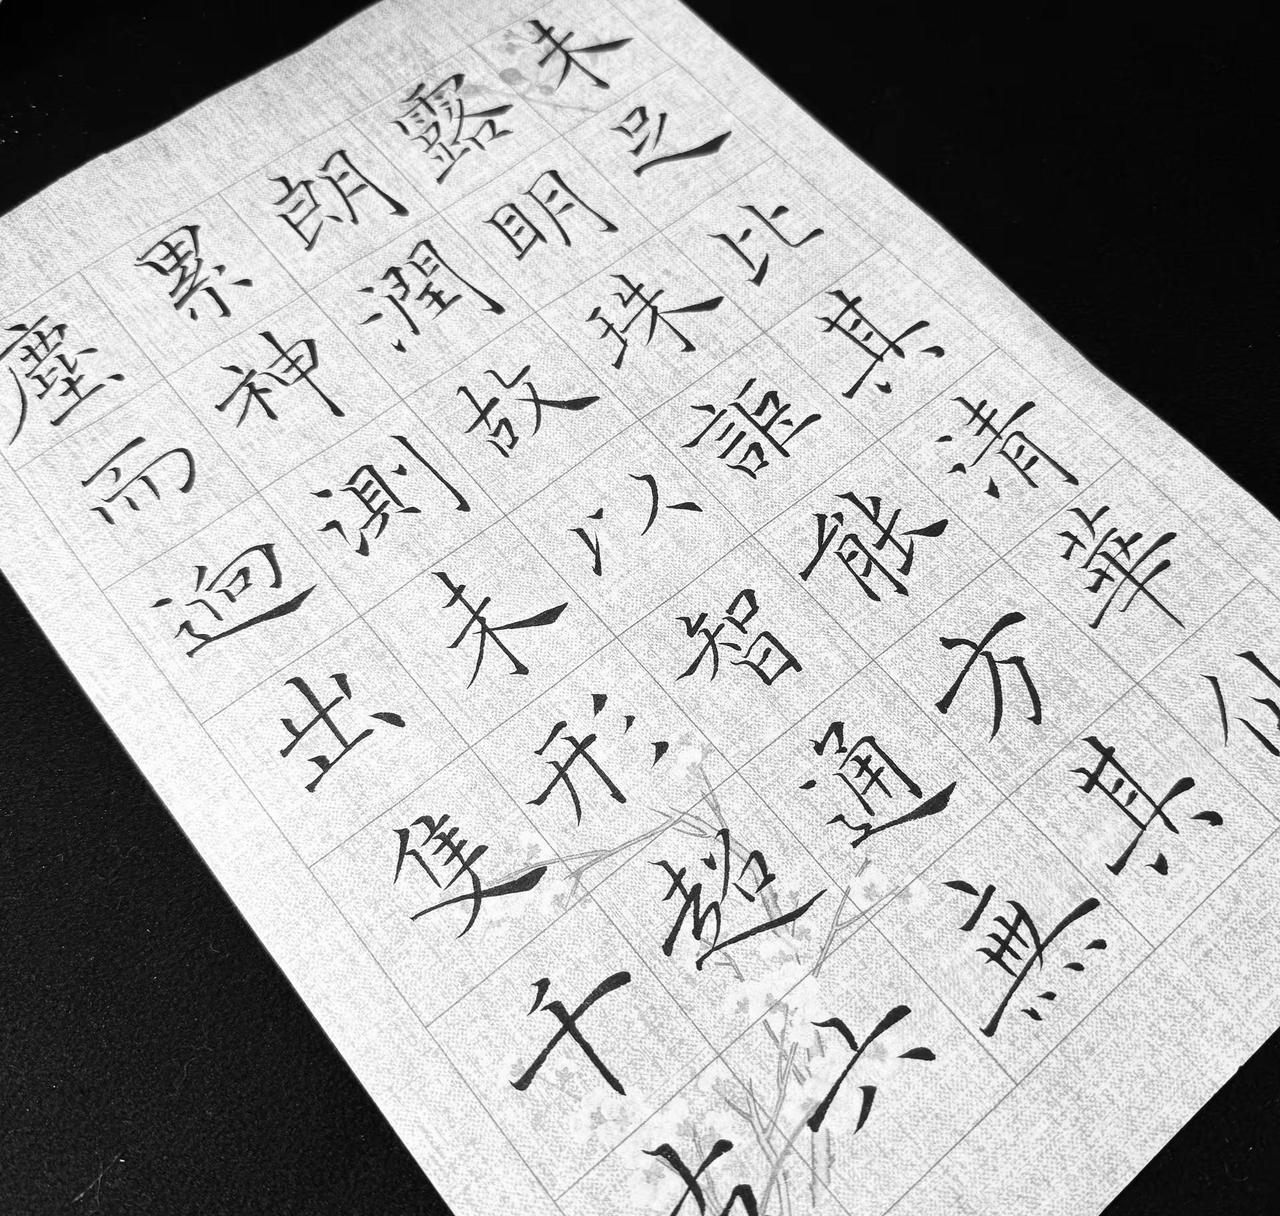 未足比其清華仙
露明珠詎能方其
朗潤故以智通無
累神測未形超六
塵而逈出隻千古